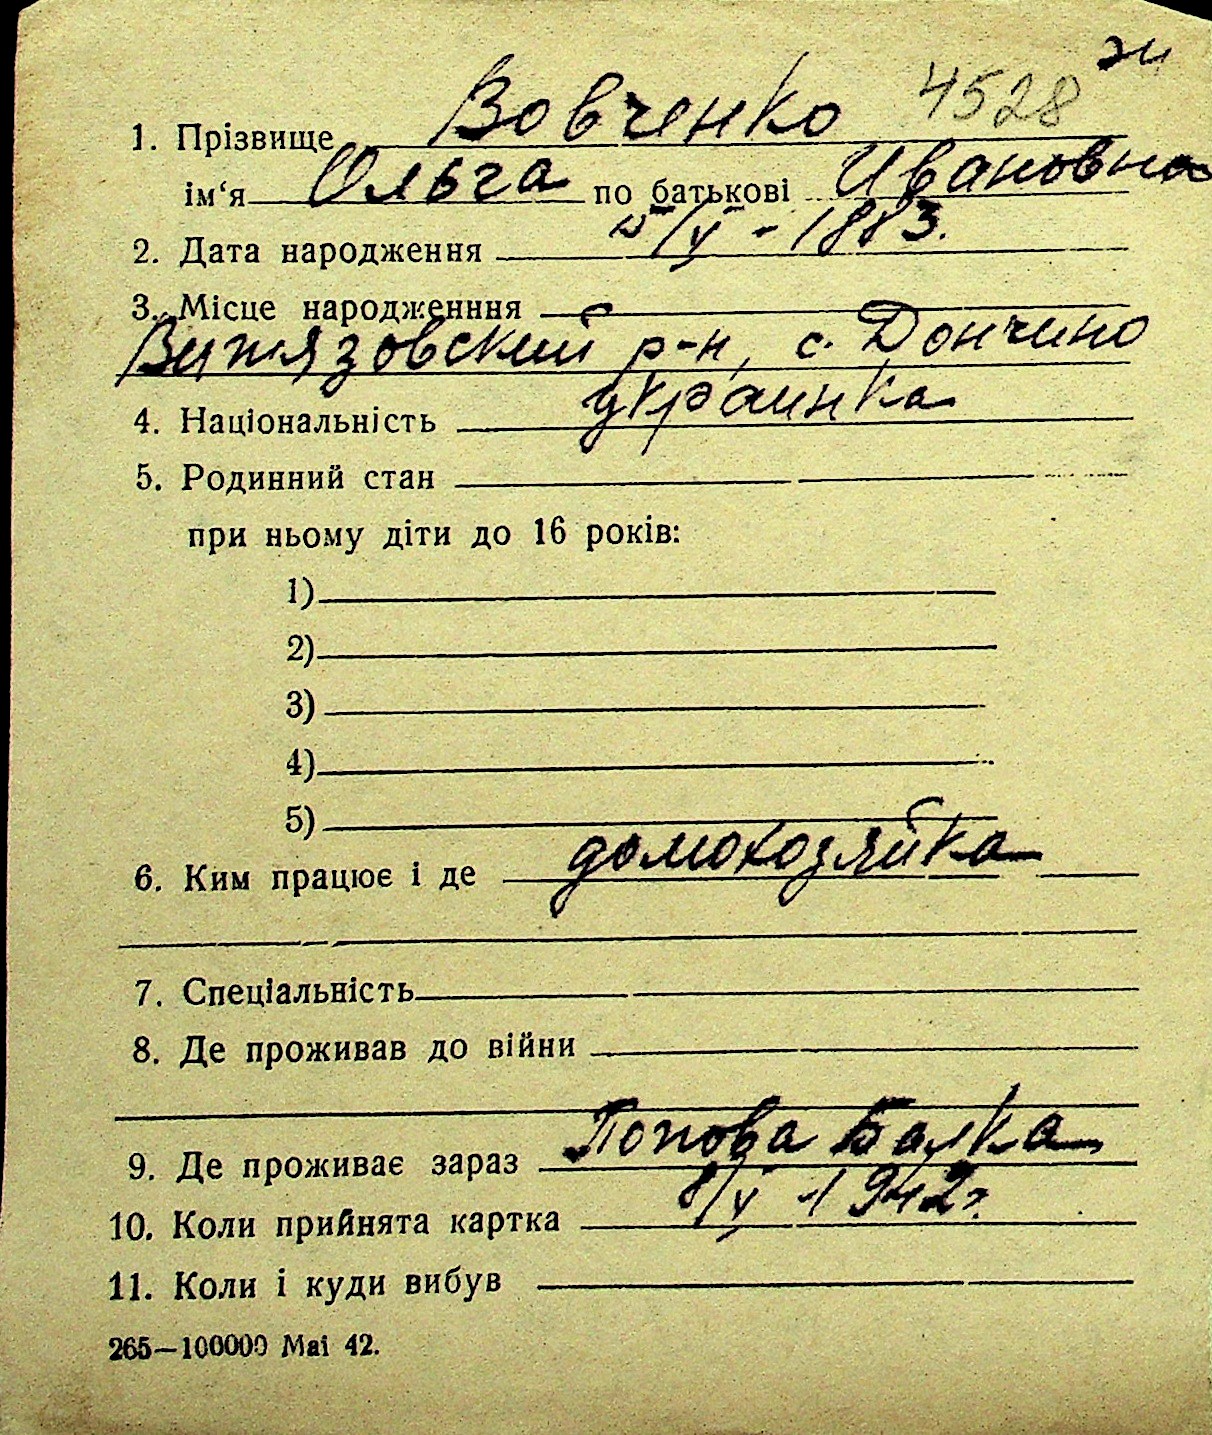 4528
1. Прізвище Вовченко
ім‘я Ольга по батькові Ивановна
2. Дата народження 15/V - 1883.
3. Місце народженння
Витязовский р-н, с. Дончино
4. Національність украинка
5. Родинний стан
при ньому діти до 16 років:
1)
2)
3)
4)
5)
6. Ким працює і де домохозяйка
7. Спеціальність
8. Де проживав до війни
9. Де проживає зараз Попова Балка
10. Коли прийнята картка 8/V 1942г.
11. Коли і куди вибув
265—100000 Mai 42.